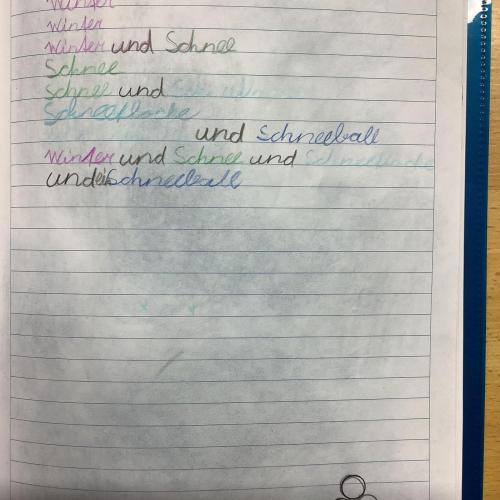 Winter
Winter
Winter und Schnee
Schnee
Schnee und
Schneeflocke
und Schneeball
Winter und Schnee und Schneeflocke
und ein Schneeball